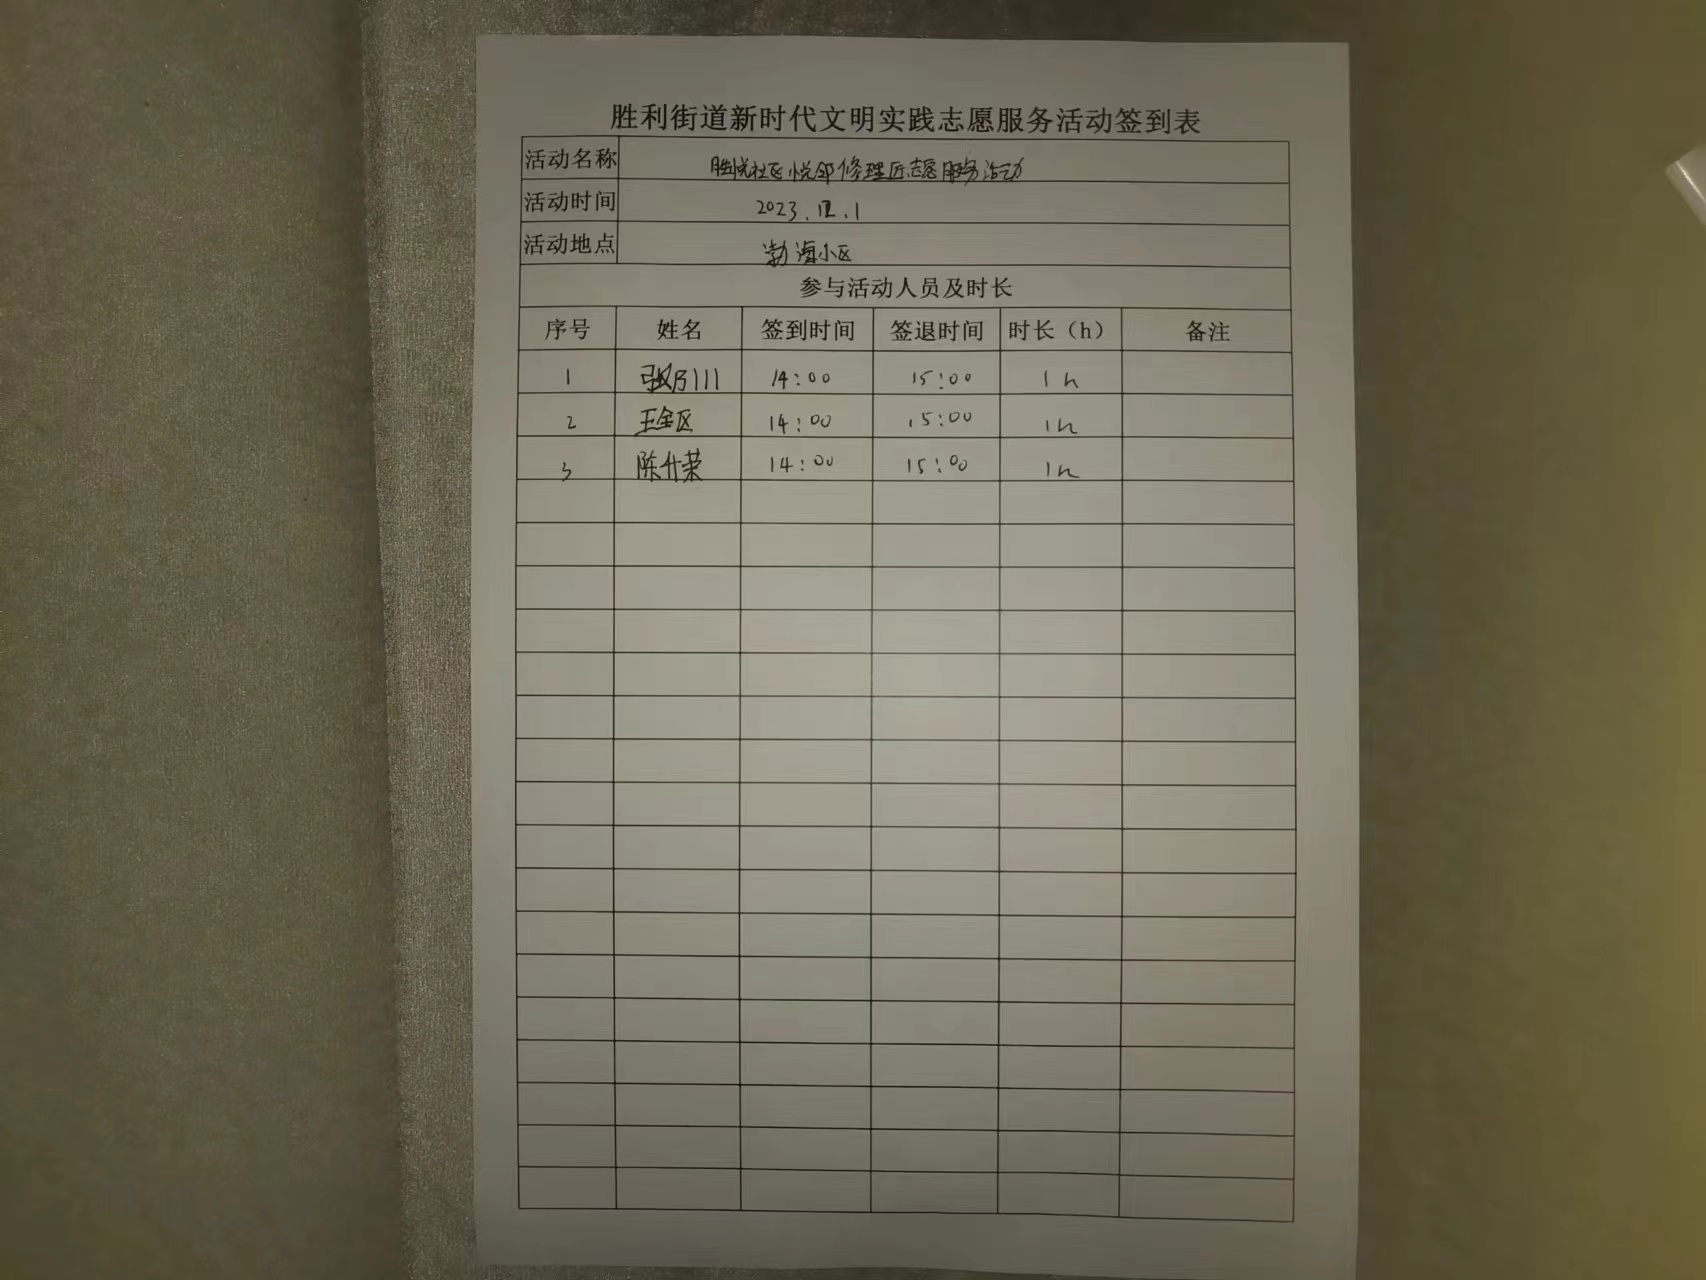 胜利街道新时代文明实践志愿服务活动签到表
活动名称 胜悦社区悦邻修理匠志愿服务活动
活动时间 2023.12.1
活动地点 渤海小区
参与活动人员及时长
序号 姓名 签到时间 签退时间 时长（h） 备注
1 14:00 15:00 1h
2 王全区 14:00 15:00 1h
3 陈什荣 14:00 15:00 1h